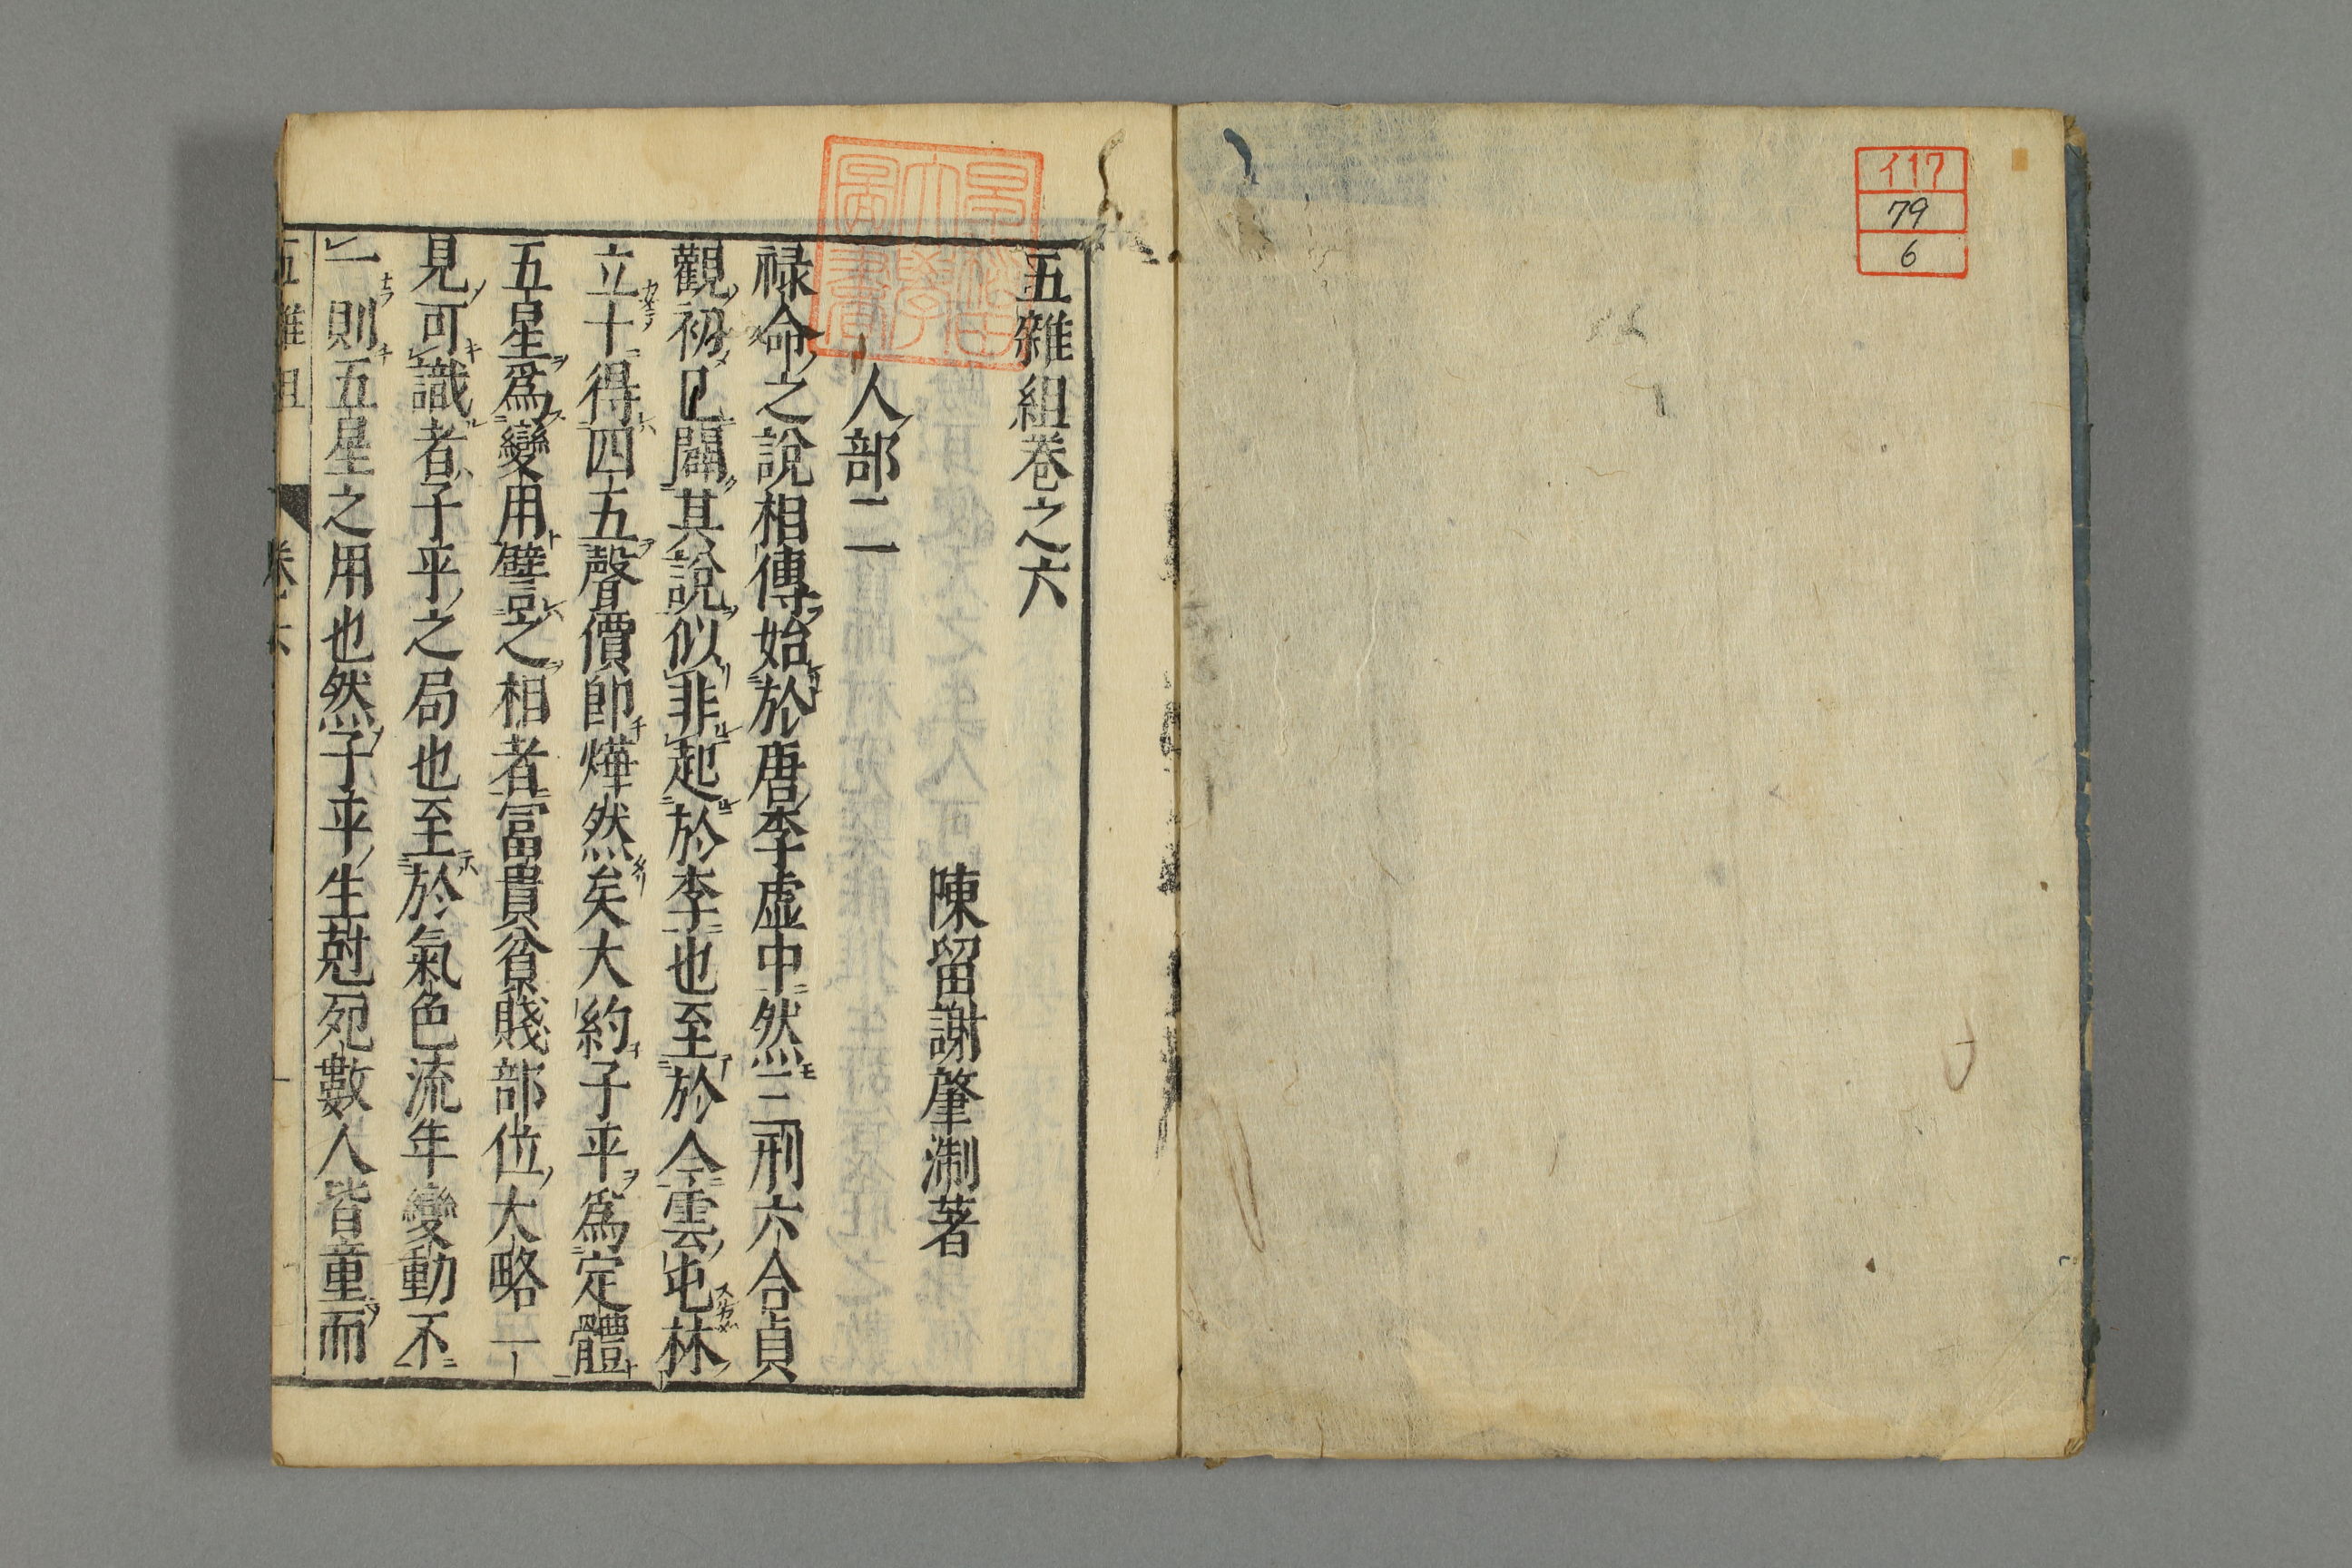 イ17
79
6
五雜組卷之六
陳留謝肇淛著
人部二
禄命之說相傳始於唐李虛中然三刑六合貞
觀初已闢其說似非起於李也至於今雲屯林
立十得四五聲價即燁然矣大約子平爲定體
五星爲變用譬之相者富貴貧賤部位大略一
見可識者子平之局也至於氣色流年變動不
一則五星之用也然子平生尅死數人皆童而
五雜組 卷六
早稲田大學圖書